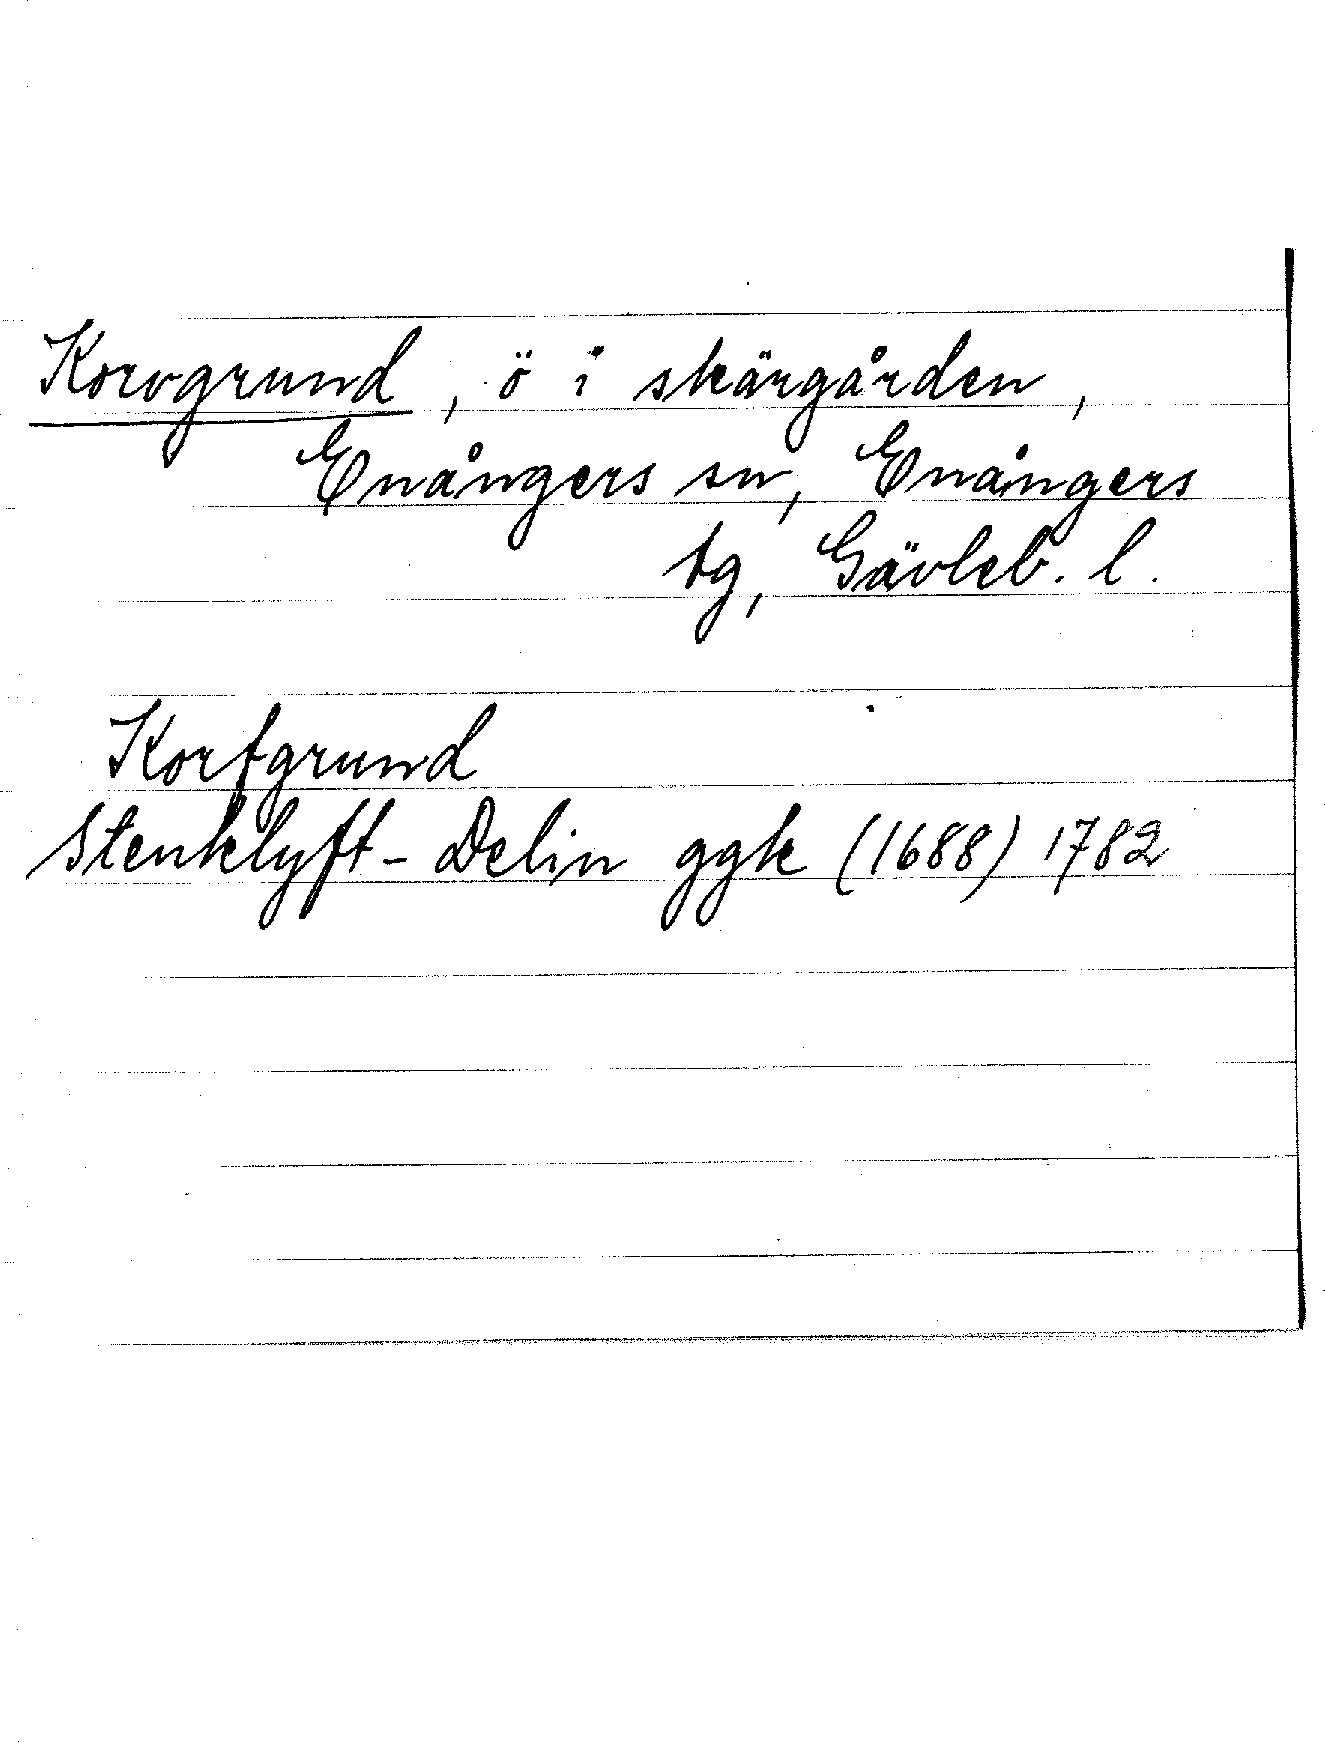 Korvgrund, ö i skärgården,
Enångers sn, Enångers
tg, Gävleb. l.
Korfgrund
Stenklyft - Delin ggk (1688) 1782